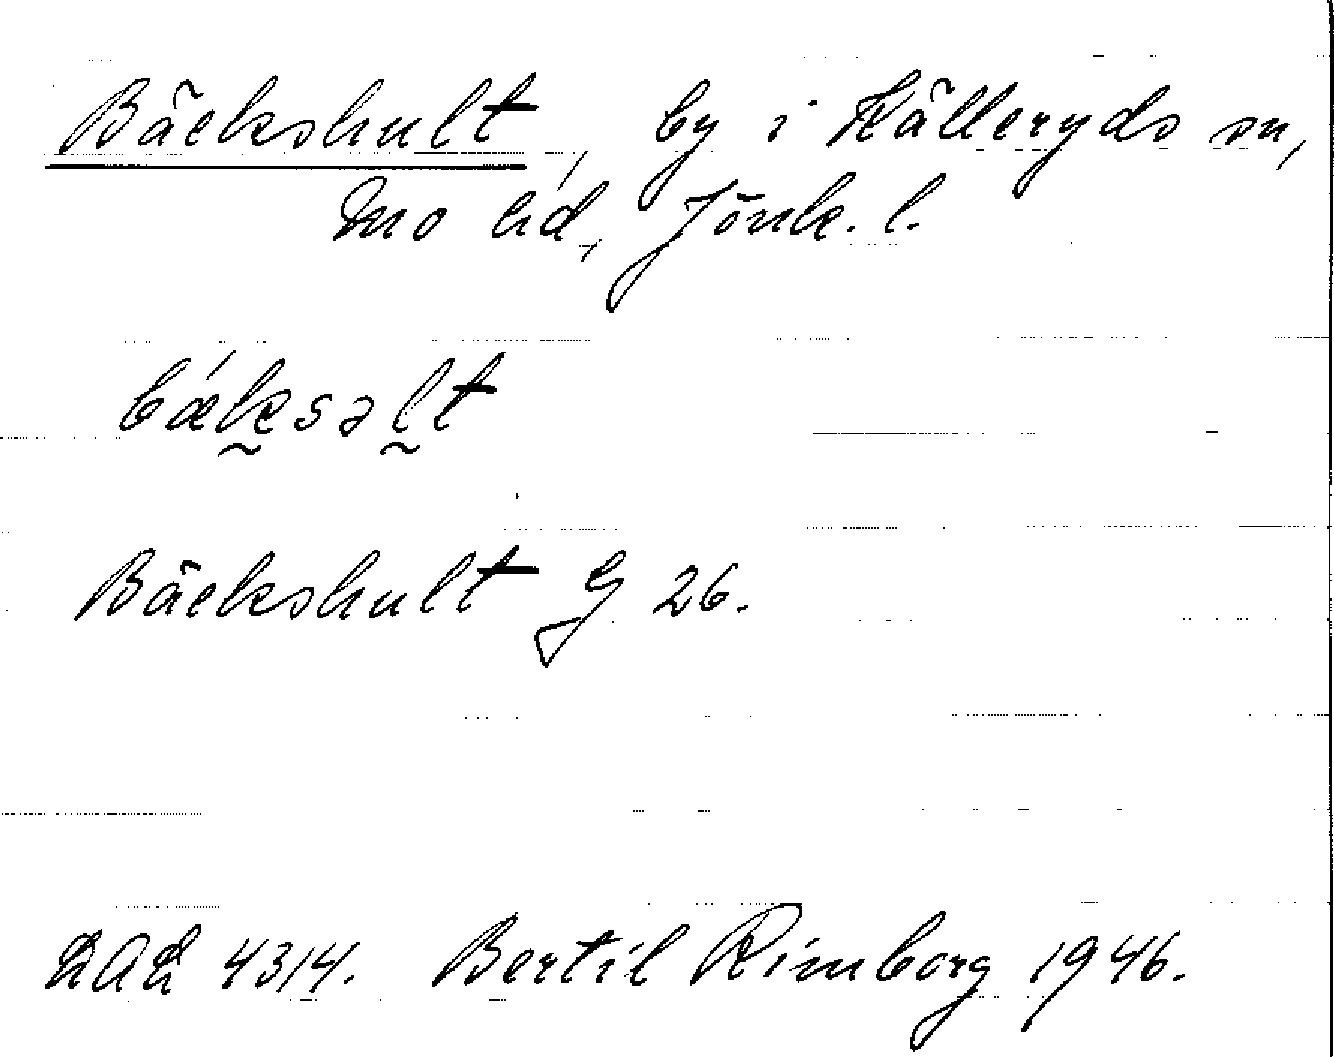 Bäckshult, by i Källeryds sn,
Mo hd, Jönk. l.
bǽk̰səl̰t
Bäckshult G 26.
LAL 4314. Bertil Rimborg 1946.